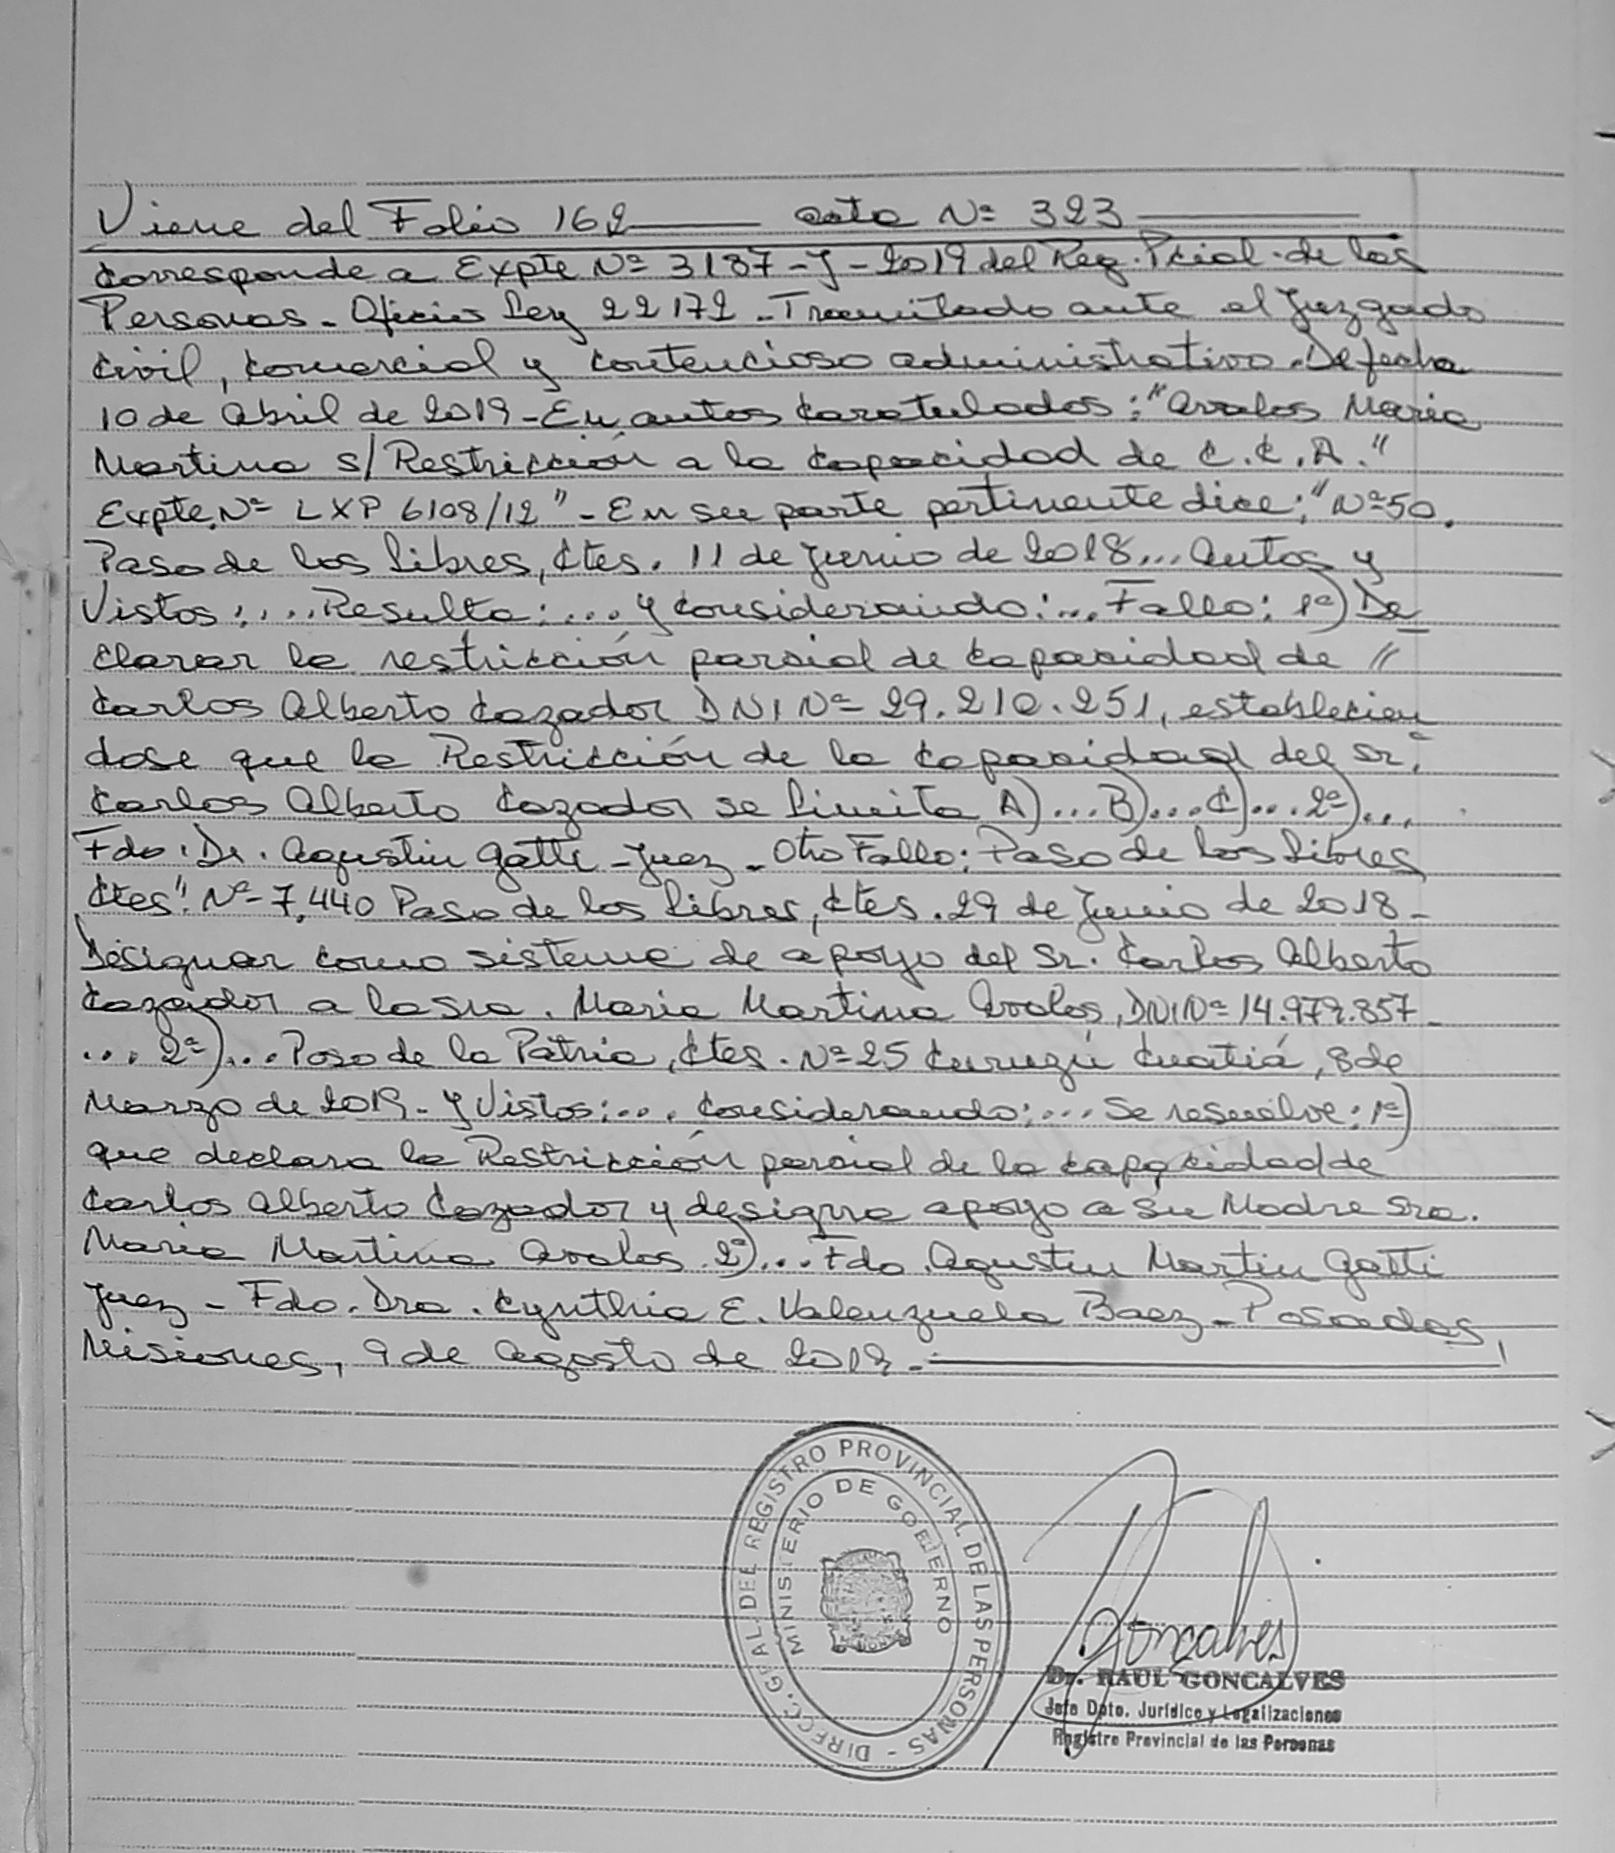 Viene del Folio 162 acta Nº 323
Corresponde a Expte Nº 3187-J-2019 del Reg. Pcial. de las
Personas. Oficio Ley 22172 - Tramitado ante el Juzgado
Civil, Comercial y Contencioso administrativo. De fecha
10 de Abril de 2019 - En autos Caratulados: "Avalos Maria
Martina s/ Restricción a la Capacidad de C.C.A."
Expte. Nº LXP 6108/12" - En su parte pertinente dice: "Nº 50.
Paso de los Libres, Ctes. 11 de Junio de 2018... Autos y
Vistos:... Resulta:... y Considerando:... Fallo: 1º) De
clarar la restricción parcial de Capacidad de "
Carlos Alberto Cazador DNI Nº 29.210.251, establecien
dose que la Restricción de la Capacidad del Sr.
Carlos Alberto Cazador se limita A)... B)... C)... 2º)...
Fdo. Dr. Agustin Gatti - Juez - Otro Fallo: Paso de los Libres
Ctes". Nº 7.440 Paso de los Libres, Ctes. 29 de Junio de 2018 -
Designar como sistema de apoyo del Sr. Carlos Alberto
Cazador a la Sra. Maria Martina Avalos, DNI Nº 14.979.857 -
... 2º)... Paso de la Patria, Ctes. Nº 25 Curuzú Cuatiá, 8 de
Marzo de 2019 - y Vistos:... Considerando:... Se resuelve: 1º)
que declara la Restricción parcial de la capacidad de
Carlos Alberto Cazador y designa apoyo a su Madre Sra.
Maria Martina Avalos. 2º)... Fdo. Agustin Martin Gatti
Juez - Fdo. Dra. Cynthia E. Valenzuela Baez - Posadas,
Misiones, 9 de Agosto de 2019.-
DIRECC. GRAL. DEL REGISTRO PROVINCIAL DE LAS PERSONAS -
MINISTERIO DE GOBIERNO
Gonçalves
Dr. RAUL GONCALVES
Jefe Dpto. Jurídico y Legalizaciones
Registro Provincial de las Personas